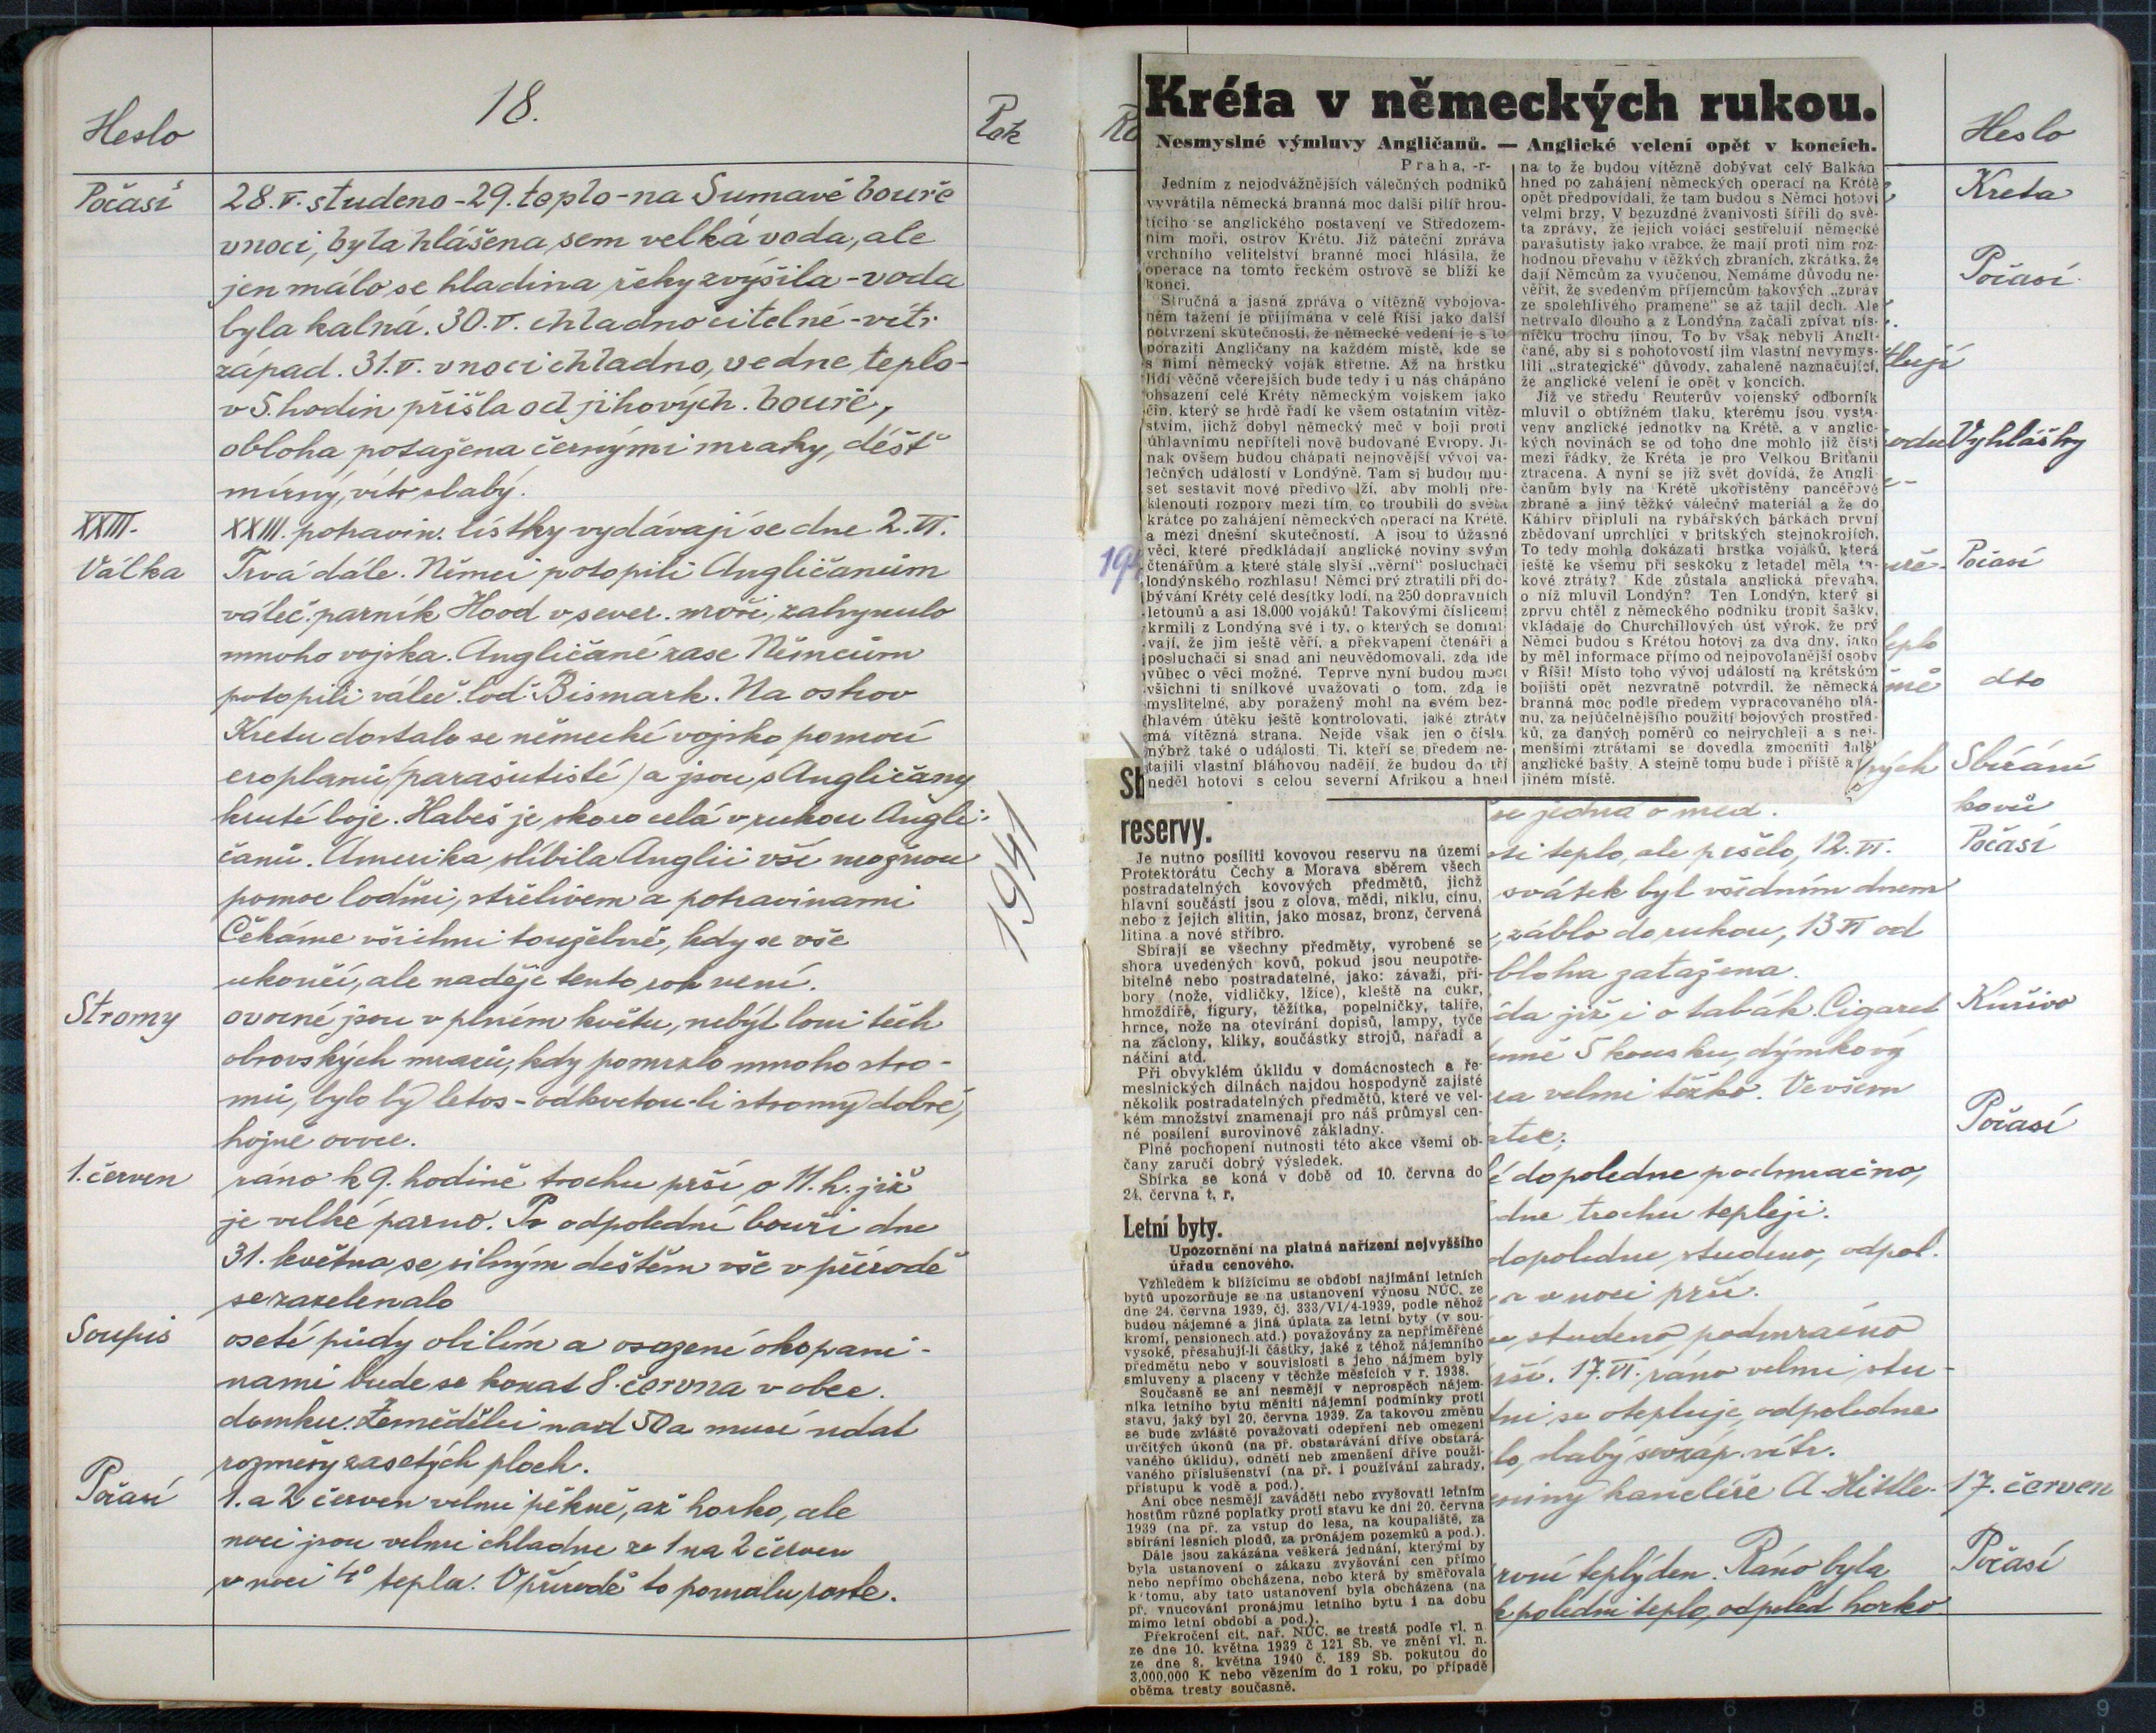 18.
Heslo
Rok
Počasí
28.V. studeno - 29. teplo - na Šumavě bouře
v noci, byla hlášena sem velká voda, ale
jen málo se hladina řeky zvýšila - voda
byla kalná. 30.V. chladno citelné - vítr
západ. 31.V. v noci chladno, ve dne teplo -
v 5. hodin přišla od jihových. bouře,
obloha potažena černými mraky, déšť
mírný, vítr slabý.
XXIII.
XXIII. potravin. lístky vydávají se dne 2.VI.
Válka
Trvá dále. Němci potopili Angličanům
váleč. parník Hood v sever. moři, zahynulo
mnoho vojska. Angličané zase Němcům
potopili váleč. loď Bismark. Na ostrov
Kretu dostalo se německé vojsko pomocí
eroplanů (parašutisté) a jsou s Angličany
kruté boje. Habeš je skoro celá v rukou Angli-
čanů. Amerika slíbila Anglii vší možnou
pomoc loděmi, střelivem a potravinami
Čekáme všichni toužebně, kdy se vše
ukončí, ale naděje tento rok není.
1941
Stromy
ovocné jsou v plném květu, nebýt loni těch
obrovských mrazů, kdy pomrzlo mnoho stro-
mů, bylo by letos - odkvetou-li stromy dobře,
hojně ovoce.
1. červen
ráno k 9. hodině trochu prší, o 11. h. již
je velké parno. Po odpolední bouři dne
31. května se silným deštěm vše v přírodě
se zazelenalo
Soupis
oseté půdy obilím a osazené okopani-
nami bude se konat 8. června v obec.
domku. Zemědělci nad 50 a musí udat
rozměry zasetých ploch.
Počasí
1. a 2 červen velmi pěkně, až horko, ale
noci jsou velmi chladne ze 1 na 2 červen
v noci 4° tepla. V přírodě to pomalu roste.
Ro
Kréta v německých rukou.
Nesmyslné výmluvy Angličanů. — Anglické velení opět v koncích.
Praha, -r-
Jedním z nejodvážnějších válečných podniků
vyvrátila německá branná moc další pilíř hrou-
tícího se anglického postavení ve Středozem-
ním moři, ostrov Krétu. Již páteční zpráva
vrchního velitelství branné moci hlásila, že
operace na tomto řeckém ostrově se blíží ke
konci.
Stručná a jasná zpráva o vítězně vybojova-
ném tažení je přijímána v celé Říši jako další
potvrzení skutečnosti, že německé vedení je s to
poraziti Angličany na každém místě, kde se
s nimi německý voják střetne. Až na hrstku
lidí věčně včerejších bude tedy i u nás chápáno
obsazení celé Kréty německým vojskem jako
čin, který se hrdě řadí ke všem ostatním vítěz-
stvím, jichž dobyl německý meč v boji proti
úhlavnímu nepříteli nově budované Evropy. Ji-
nak ovšem budou chápati nejnovější vývoj vá-
lečných událostí v Londýně. Tam si budou mu-
set sestavit nové předivo lží, aby mohli pře-
klenouti rozpory mezi tím, co troubili do světa
krátce po zahájení německých operací na Krétě,
a mezi dnešní skutečností. A jsou to úžasné
věci, které předkládají anglické noviny svým
čtenářům a které stále slyší „věrní" posluchači
londýnského rozhlasu! Němci prý ztratili při do-
bývání Kréty celé desítky lodí, na 250 dopravních
letounů a asi 18.000 vojáků! Takovými číslicemi
krmili z Londýna své i ty, o kterých se domní-
vají, že jim ještě věří, a překvapení čtenáři a
posluchači si snad ani neuvědomovali, zda jde
vůbec o věci možné. Teprve nyní budou moci
všichni ti snílkové uvažovati o tom, zda je
myslitelné, aby poražený mohl na svém bez-
hlavém útěku ještě kontrolovati, jaké ztráty
má vítězná strana. Nejde však jen o čísla,
nýbrž také o události. Ti, kteří se předem ne-
tajili vlastní bláhovou nadějí, že budou do tří
neděl hotovi s celou severní Afrikou a hned
na to že budou vítězně dobývat celý Balkán
hned po zahájení německých operací na Krétě
opět předpovídali, že tam budou s Němci hotovi
velmi brzy. V bezuzdné žvanivosti šířili do svě-
ta zprávy, že jejich vojáci sestřelují německé
parašutisty jako vrabce, že mají proti nim roz-
hodnou převahu v těžkých zbraních, zkrátka, že
dají Němcům za vyučenou. Nemáme důvodu ne-
věřit, že svedeným příjemcům takových „zpráv
ze spolehlivého pramene" se až tajil dech. Ale
netrvalo dlouho a z Londýna začali zpívat pís-
ničku trochu jinou. To by však nebyli Angli-
čané, aby si s pohotovostí jim vlastní nevymys-
lili „strategické" důvody, zahaleně naznačující,
že anglické velení je opět v koncích.
Již ve středu Reuterův vojenský odborník
mluvil o obtížném tlaku, kterému jsou vysta-
veny anglické jednotky na Krétě, a v anglic-
kých novinách se od toho dne mohlo již čísti
mezi řádky, že Kréta je pro Velkou Britanii
ztracena. A nyní se již svět dovídá, že Angli-
čanům byly na Krétě ukořistěny pancéřové
zbraně a jiný těžký válečný materiál a že do
Káhiry připluli na rybářských bárkách první
zbědovaní uprchlíci v britských stejnokrojích.
To tedy mohla dokázati hrstka vojáků, která
ještě ke všemu při seskoku z letadel měla ta-
kové ztráty? Kde zůstala anglická převaha,
o níž mluvil Londýn? Ten Londýn, který si
zprvu chtěl z německého podniku tropit šašky,
vkládaje do Churchillových úst výrok, že prý
Němci budou s Krétou hotovi za dva dny, jako
by měl informace přímo od nejpovolanější osoby
v Říši! Místo toho vývoj událostí na krétském
bojišti opět nezvratně potvrdil, že německá
branná moc podle předem vypracovaného plá-
nu, za nejúčelnějšího použití bojových prostřed-
ků, za daných poměrů co nejrychleji a s nej-
menšími ztrátami se dovedla zmocniti další
anglické bašty. A stejně tomu bude i příště a
jiném místě.
reservy.
Je nutno posíliti kovovou reservu na území
Protektorátu Čechy a Morava sběrem všech
postradatelných kovových předmětů, jichž
hlavní součástí jsou z olova, mědi, niklu, cínu,
nebo z jejich slitin, jako mosaz, bronz, červená
litina a nové stříbro.
Sbírají se všechny předměty, vyrobené se
shora uvedených kovů, pokud jsou neupotře-
bitelné nebo postradatelné, jako: závaží, pří-
bory (nože, vidličky, lžíce), kleště na cukr,
hmoždíře, figury, těžítka, popelníčky, talíře,
hrnce, nože na otevírání dopisů, lampy, tyče
na záclony, kliky, součástky strojů, nářadí a
náčiní atd.
Při obvyklém úklidu v domácnostech a ře-
meslnických dílnách najdou hospodyně zajisté
několik postradatelných předmětů, které ve vel-
kém množství znamenají pro náš průmysl cen-
né posílení surovinové základny.
Plné pochopení nutnosti této akce všemi ob-
čany zaručí dobrý výsledek.
Sbírka se koná v době od 10. června do
24. června t. r.
Letní byty.
Upozornění na platná nařízení nejvyššího
úřadu cenového.
Vzhledem k blížícímu se období najímání letních
bytů upozorňuje se na ustanovení výnosu NÚC. ze
dne 24. června 1939, čj. 333/VI/4-1939, podle něhož
budou nájemné a jiná úplata za letní byty (v sou-
kromí, pensionech atd.) považovány za nepřiměřeně
vysoké, přesahují-li částky, jaké z téhož nájemního
předmětu nebo v souvislosti s jeho nájmem byly
smluveny a placeny v těchže měsících v r. 1938.
Současně se ani nesmějí v neprospěch nájem-
níka letního bytu měniti nájemní podmínky proti
stavu, jaký byl 20. června 1939. Za takovou změnu
se bude zvláště považovati odepření neb omezení
určitých úkonů (na př. obstarávání dříve obstará-
vaného úklidu), odnětí neb zmenšení dříve použí-
vaného příslušenství (na př. i používání zahrady,
přístupu k vodě a pod.).
Ani obce nesmějí zaváděti nebo zvyšovati letním
hostům různé poplatky proti stavu ke dni 20. června
1939 (na př. za vstup do lesa, na koupaliště, za
sbírání lesních plodů, za pronájem pozemků a pod.).
Dále jsou zakázána veškerá jednání, kterými by
byla ustanovení o zákazu zvyšování cen přímo
nebo nepřímo obcházena, nebo která by směřovala
k tomu, aby tato ustanovení byla obcházena (na
př. vnucování pronájmu letního bytu i na dobu
mimo letní období a pod.).
Překročení cit. nař. NÚC. se trestá podle vl. n.
ze dne 10. května 1939 č 121 Sb. ve znění vl. n.
ze dne 8. května 1940 č. 189 Sb. pokutou do
3,000.000 K nebo vězením do 1 roku, po případě
oběma tresty současně.
Heslo
Kreta
Počasí
Vyhlášky
Počasí
dto
Sbírání
kovů
se jedná o med.
Počasí
teplo, ale pršelo, 12.VI.
svátek byl všedním dnem
záblo do rukou, 13 VI od
obloha zatažena.
Kuřivo
již i o tabák. Cigaret
5 kousku, dýmkový
velmi těžko. Ve všem
Počasí
dopoledne podmračno,
trochu tepleji.
dopoledne studeno, odpol.
a v noci prší.
studeno podmračno
17.VI. ráno velmi stu-
se otepluje, odpoledne
slabý sevzáp. vítr.
kancléře A. Hitle-
17. červen
Počasí
teplý den. Ráno byla
k poledni teplo, odpoled horko.